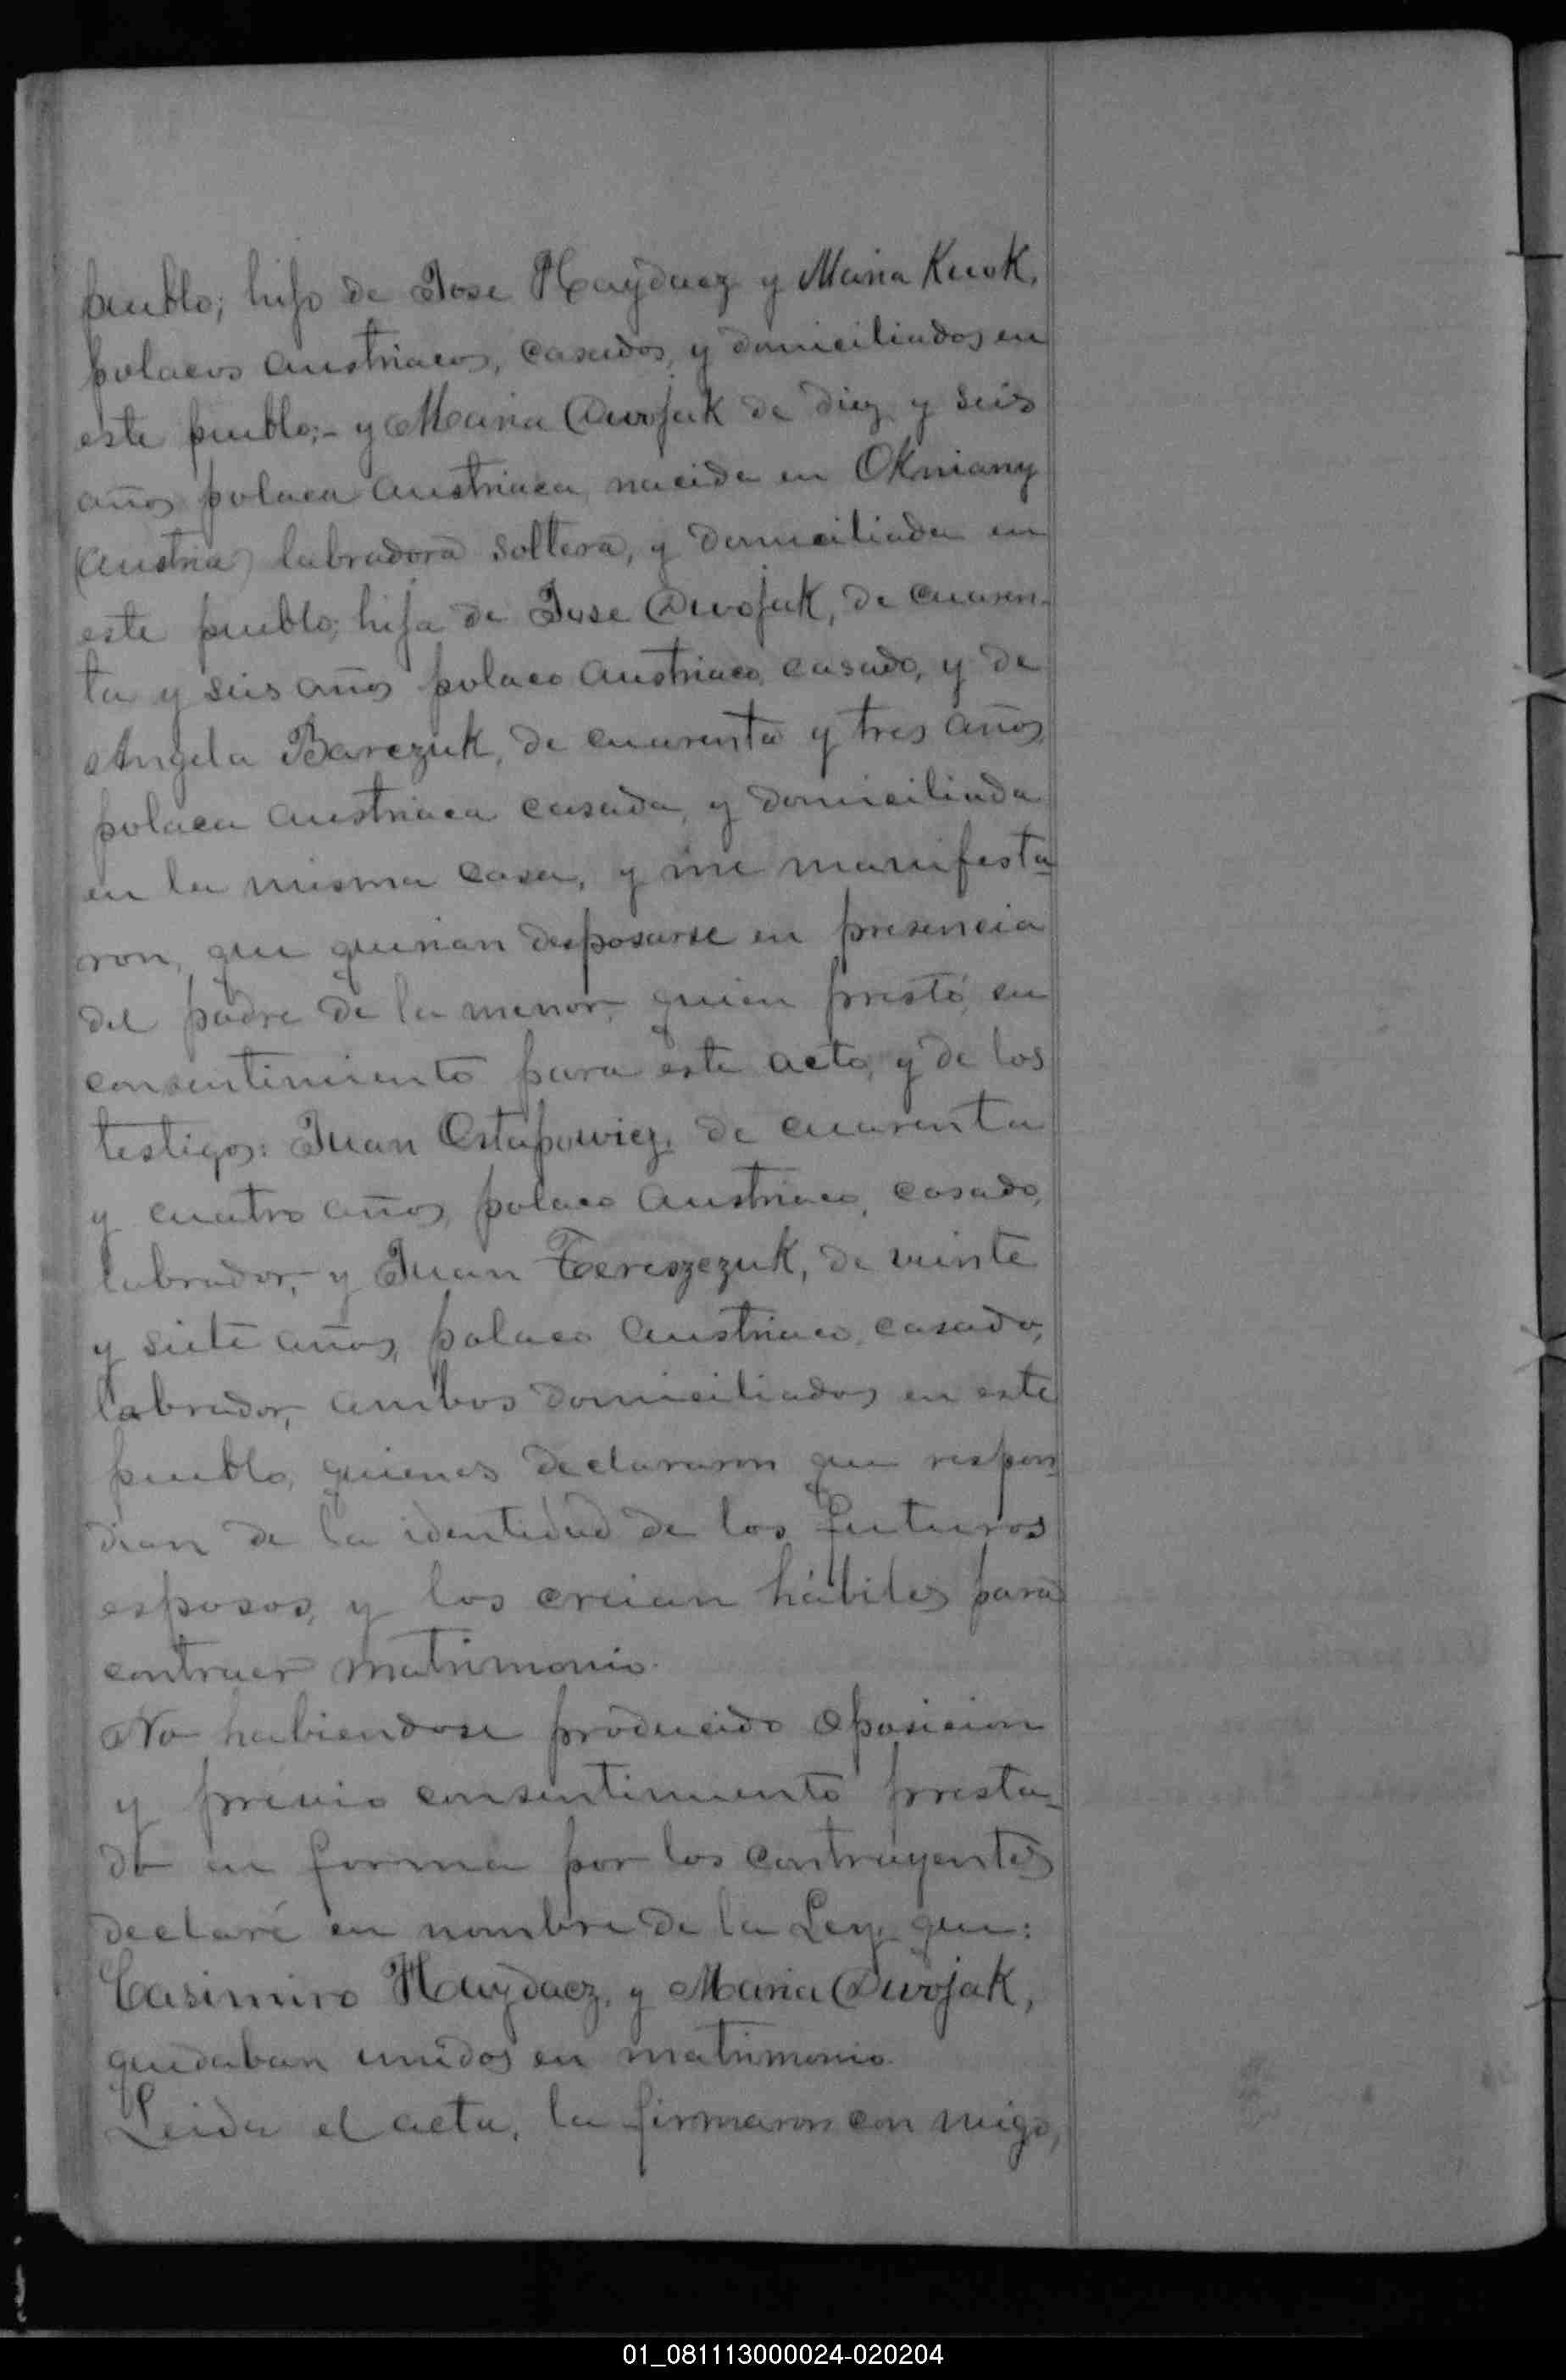 pueblo; hijo de Jose Haydacz y Maria Kuok,
polacos austriacos, casados, y domiciliados en
este pueblo;- y Maria Dwojak de diez y seis
años polaca austriaca, nacida en Okniany
(Austria) labradora soltera, y domiciliada en
este pueblo; hija de Jose Dwojak, de cuaren-
ta y seis años polaco austriaco, casado, y de
Angela Barczuk, de cuarenta y tres años,
polaca austriaca casada, y domiciliada
en la misma casa, y me manifesta-
ron, que querian desposarse en presencia
del padre de la menor, quien prestó su
consentimiento para este acto, y de los
testigos: Juan Ostapowicz, de cuarenta
y cuatro años, polaco austriaco, casado,
labrador, y Juan Tereszczuk, de veinte
y siete años, polaco austriaco, casado,
labrador, ambos domiciliados en este
pueblo, quienes declararon que respon-
dian de la identidad de los futuros
esposos, y los creian hábiles para
contraer matrimonio.
No habiendose producido oposicion
y prévio consentimiento presta-
do en forma por los contrayentes
declaré en nombre de la Ley, que:
Casimiro Haydacz, y Maria Dwojak,
quedaban unidos en matrimonio.
Leida el acta, la firmaron con migo,
01_081113000024-020204